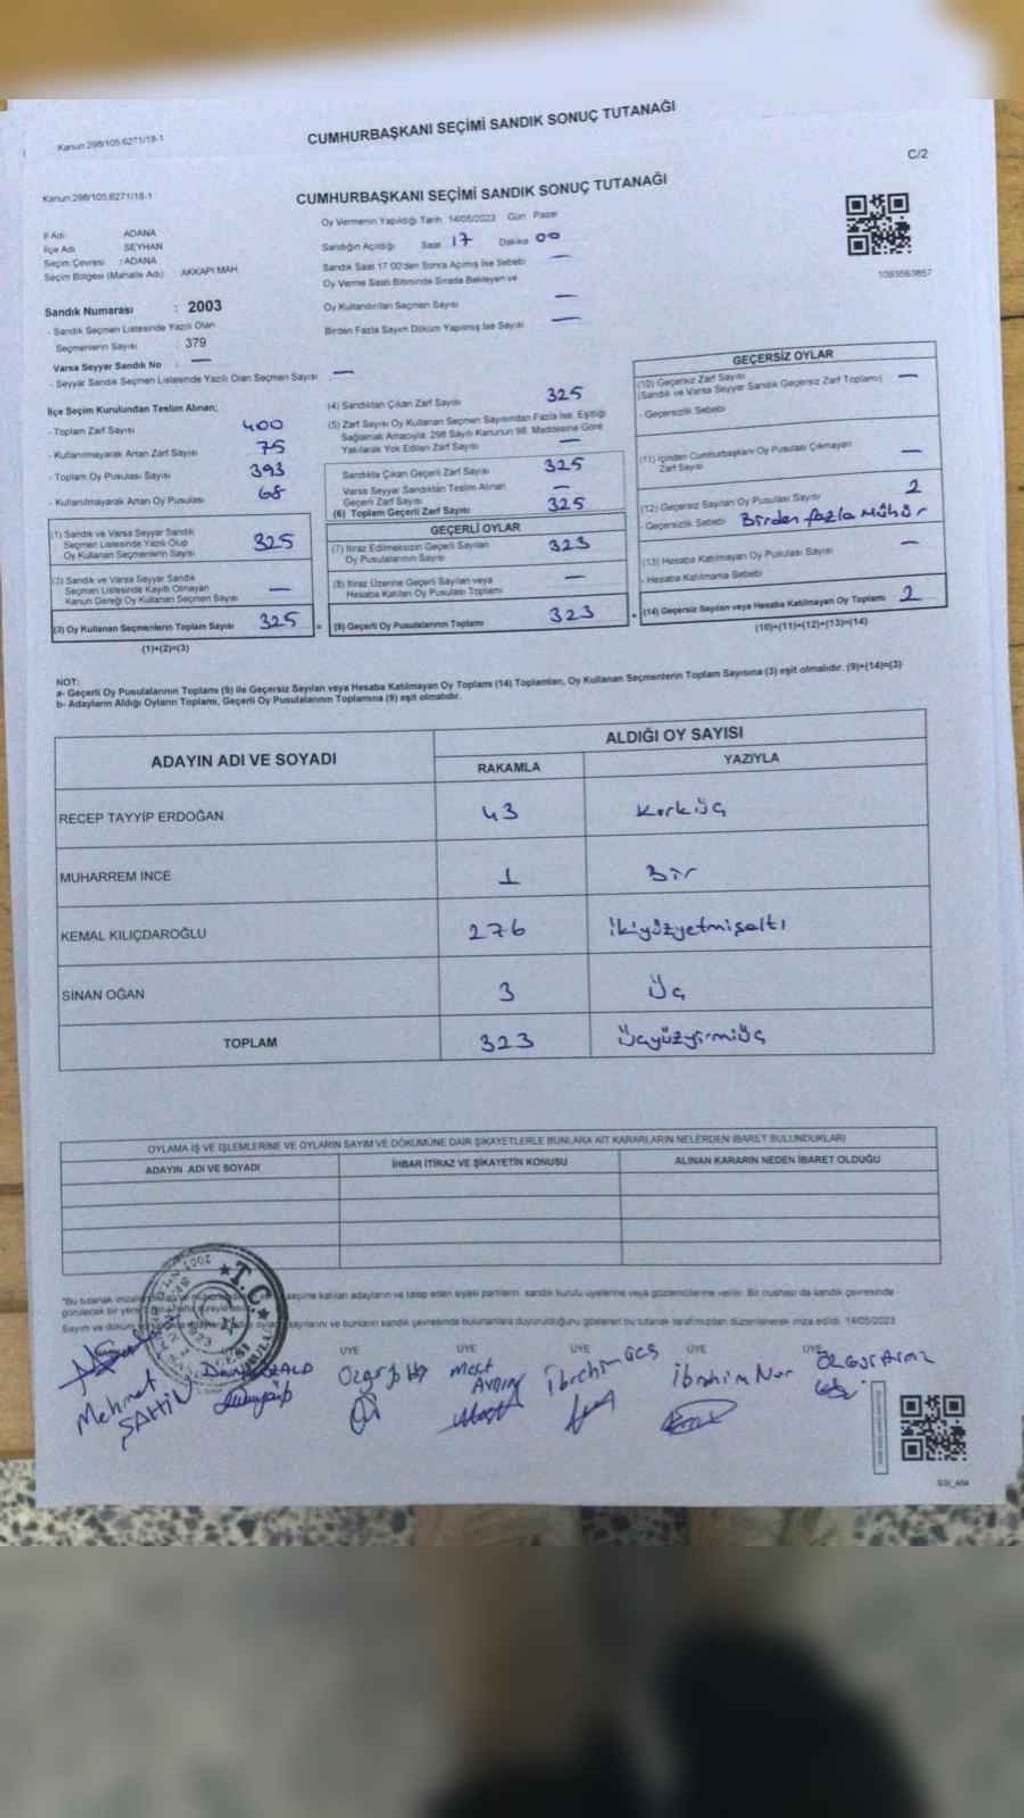 Kanun:298/105.6271/18-1
CUMHURBAŞKANI SEÇİMİ SANDIK SONUÇ TUTANAĞI
C/2
Kanun:298/105.6271/18-1
CUMHURBAŞKANI SEÇİMİ SANDIK SONUÇ TUTANAĞI
Oy Vermenin Yapıldığı Tarih 14/05/2023 Gün Pazar
İl Adı ADANA
İlçe Adı SEYHAN
Seçim Çevresi : ADANA
Seçim Bölgesi (Mahalle Adı) AKKAPI MAH.
Sandığın Açıldığı Saat 17 Dakika 00
Sandık Saat 17:00'den Sonra Açılmış İse Sebebi —
Oy Verme Saati Bitiminde Sırada Bekleyen ve
Oy Kullandırılan Seçmen Sayısı —
Birden Fazla Sayım Döküm Yapılmış İse Sayısı —
Sandık Numarası : 2003
- Sandık Seçmen Listesinde Yazılı Olan
Seçmenlerin Sayısı 379
Varsa Seyyar Sandık No : —
- Seyyar Sandık Seçmen Listesinde Yazılı Olan Seçmen Sayısı —
İlçe Seçim Kurulundan Teslim Alınan;
- Toplam Zarf Sayısı 400
- Kullanılmayarak Artan Zarf Sayısı 75
- Toplam Oy Pusulası Sayısı 393
- Kullanılmayarak Artan Oy Pusulası 68
(1) Sandık ve Varsa Seyyar Sandık
Seçmen Listesinde Yazılı Olup
Oy Kullanan Seçmenlerin Sayısı 325
(2) Sandık ve Varsa Seyyar Sandık
Seçmen Listesinde Kayıtlı Olmayan
Kanun Gereği Oy Kullanan Seçmen Sayısı —
(3) Oy Kullanan Seçmenlerin Toplam Sayısı 325 =
(1)+(2)=(3)
(4) Sandıktan Çıkan Zarf Sayısı 325
(5) Zarf Sayısı Oy Kullanan Seçmen Sayısından Fazla İse, Eşitliği
Sağlamak Amacıyla, 298 Sayılı Kanunun 98. Maddesine Göre
Yakılarak Yok Edilen Zarf Sayısı —
Sandıkta Çıkan Geçerli Zarf Sayısı 325
Varsa Seyyar Sandıktan Teslim Alınan
Geçerli Zarf Sayısı —
(6) Toplam Geçerli Zarf Sayısı 325
GEÇERLİ OYLAR
(7) İtiraz Edilmeksizin Geçerli Sayılan
Oy Pusulalarının Sayısı 323
(8) İtiraz Üzerine Geçerli Sayılan veya
Hesaba Katılan Oy Pusulası Toplamı —
(9) Geçerli Oy Pusulalarının Toplamı 323 +
GEÇERSİZ OYLAR
(10) Geçersiz Zarf Sayısı
(Sandık ve Varsa Seyyar Sandık Geçersiz Zarf Toplamı) —
- Geçersizlik Sebebi
(11) İçinden Cumhurbaşkanı Oy Pusulası Çıkmayan
Zarf Sayısı —
(12) Geçersiz Sayılan Oy Pusulası Sayısı 2
- Geçersizlik Sebebi Birden fazla Mühür
(13) Hesaba Katılmayan Oy Pusulası Sayısı —
- Hesaba Katılmama Sebebi
(14) Geçersiz Sayılan veya Hesaba Katılmayan Oy Toplamı 2
(10)+(11)+(12)+(13)=(14)
NOT:
a- Geçerli Oy Pusulalarının Toplamı (9) ile Geçersiz Sayılan veya Hesaba Katılmayan Oy Toplamı (14) Toplamları, Oy Kullanan Seçmenlerin Toplam Sayısına (3) eşit olmalıdır. (9)+(14)=(3)
b- Adayların Aldığı Oyların Toplamı, Geçerli Oy Pusulalarının Toplamına (9) eşit olmalıdır.
ADAYIN ADI VE SOYADI ALDIĞI OY SAYISI
RAKAMLA YAZIYLA
RECEP TAYYİP ERDOĞAN 43 Kırküç
MUHARREM İNCE 1 Bir
KEMAL KILIÇDAROĞLU 276 ikiyüzyetmişaltı
SİNAN OĞAN 3 Üç
TOPLAM 323 Üçyüzyirmiüç
OYLAMA İŞ VE İŞLEMLERİNE VE OYLARIN SAYIM VE DÖKÜMÜNE DAİR ŞİKAYETLERLE BUNLARA AİT KARARLARIN NELERDEN İBARET BULUNDUKLARI
ADAYIN ADI VE SOYADI İHBAR İTİRAZ VE ŞİKAYETİN KONUSU ALINAN KARARIN NEDEN İBARET OLDUĞU
T.C.
seçime katılan adayların ve talep eden siyasi partilerin sandık kurulu üyelerine veya gözlemcilerine verilir. Bir nüshası da sandık çevresinde
Sayım ve döküm sayılarını ve bunların sandık çevresinde bulunanlara duyurulduğunu gösteren bu tutanak tarafımızdan düzenlenerek imza edildi. 14/05/2023
ÜYE ÜYE ÜYE ÜYE ÜYE
Mehmet
ŞAHİN
Mert
İbrahim
İbrahim Nur